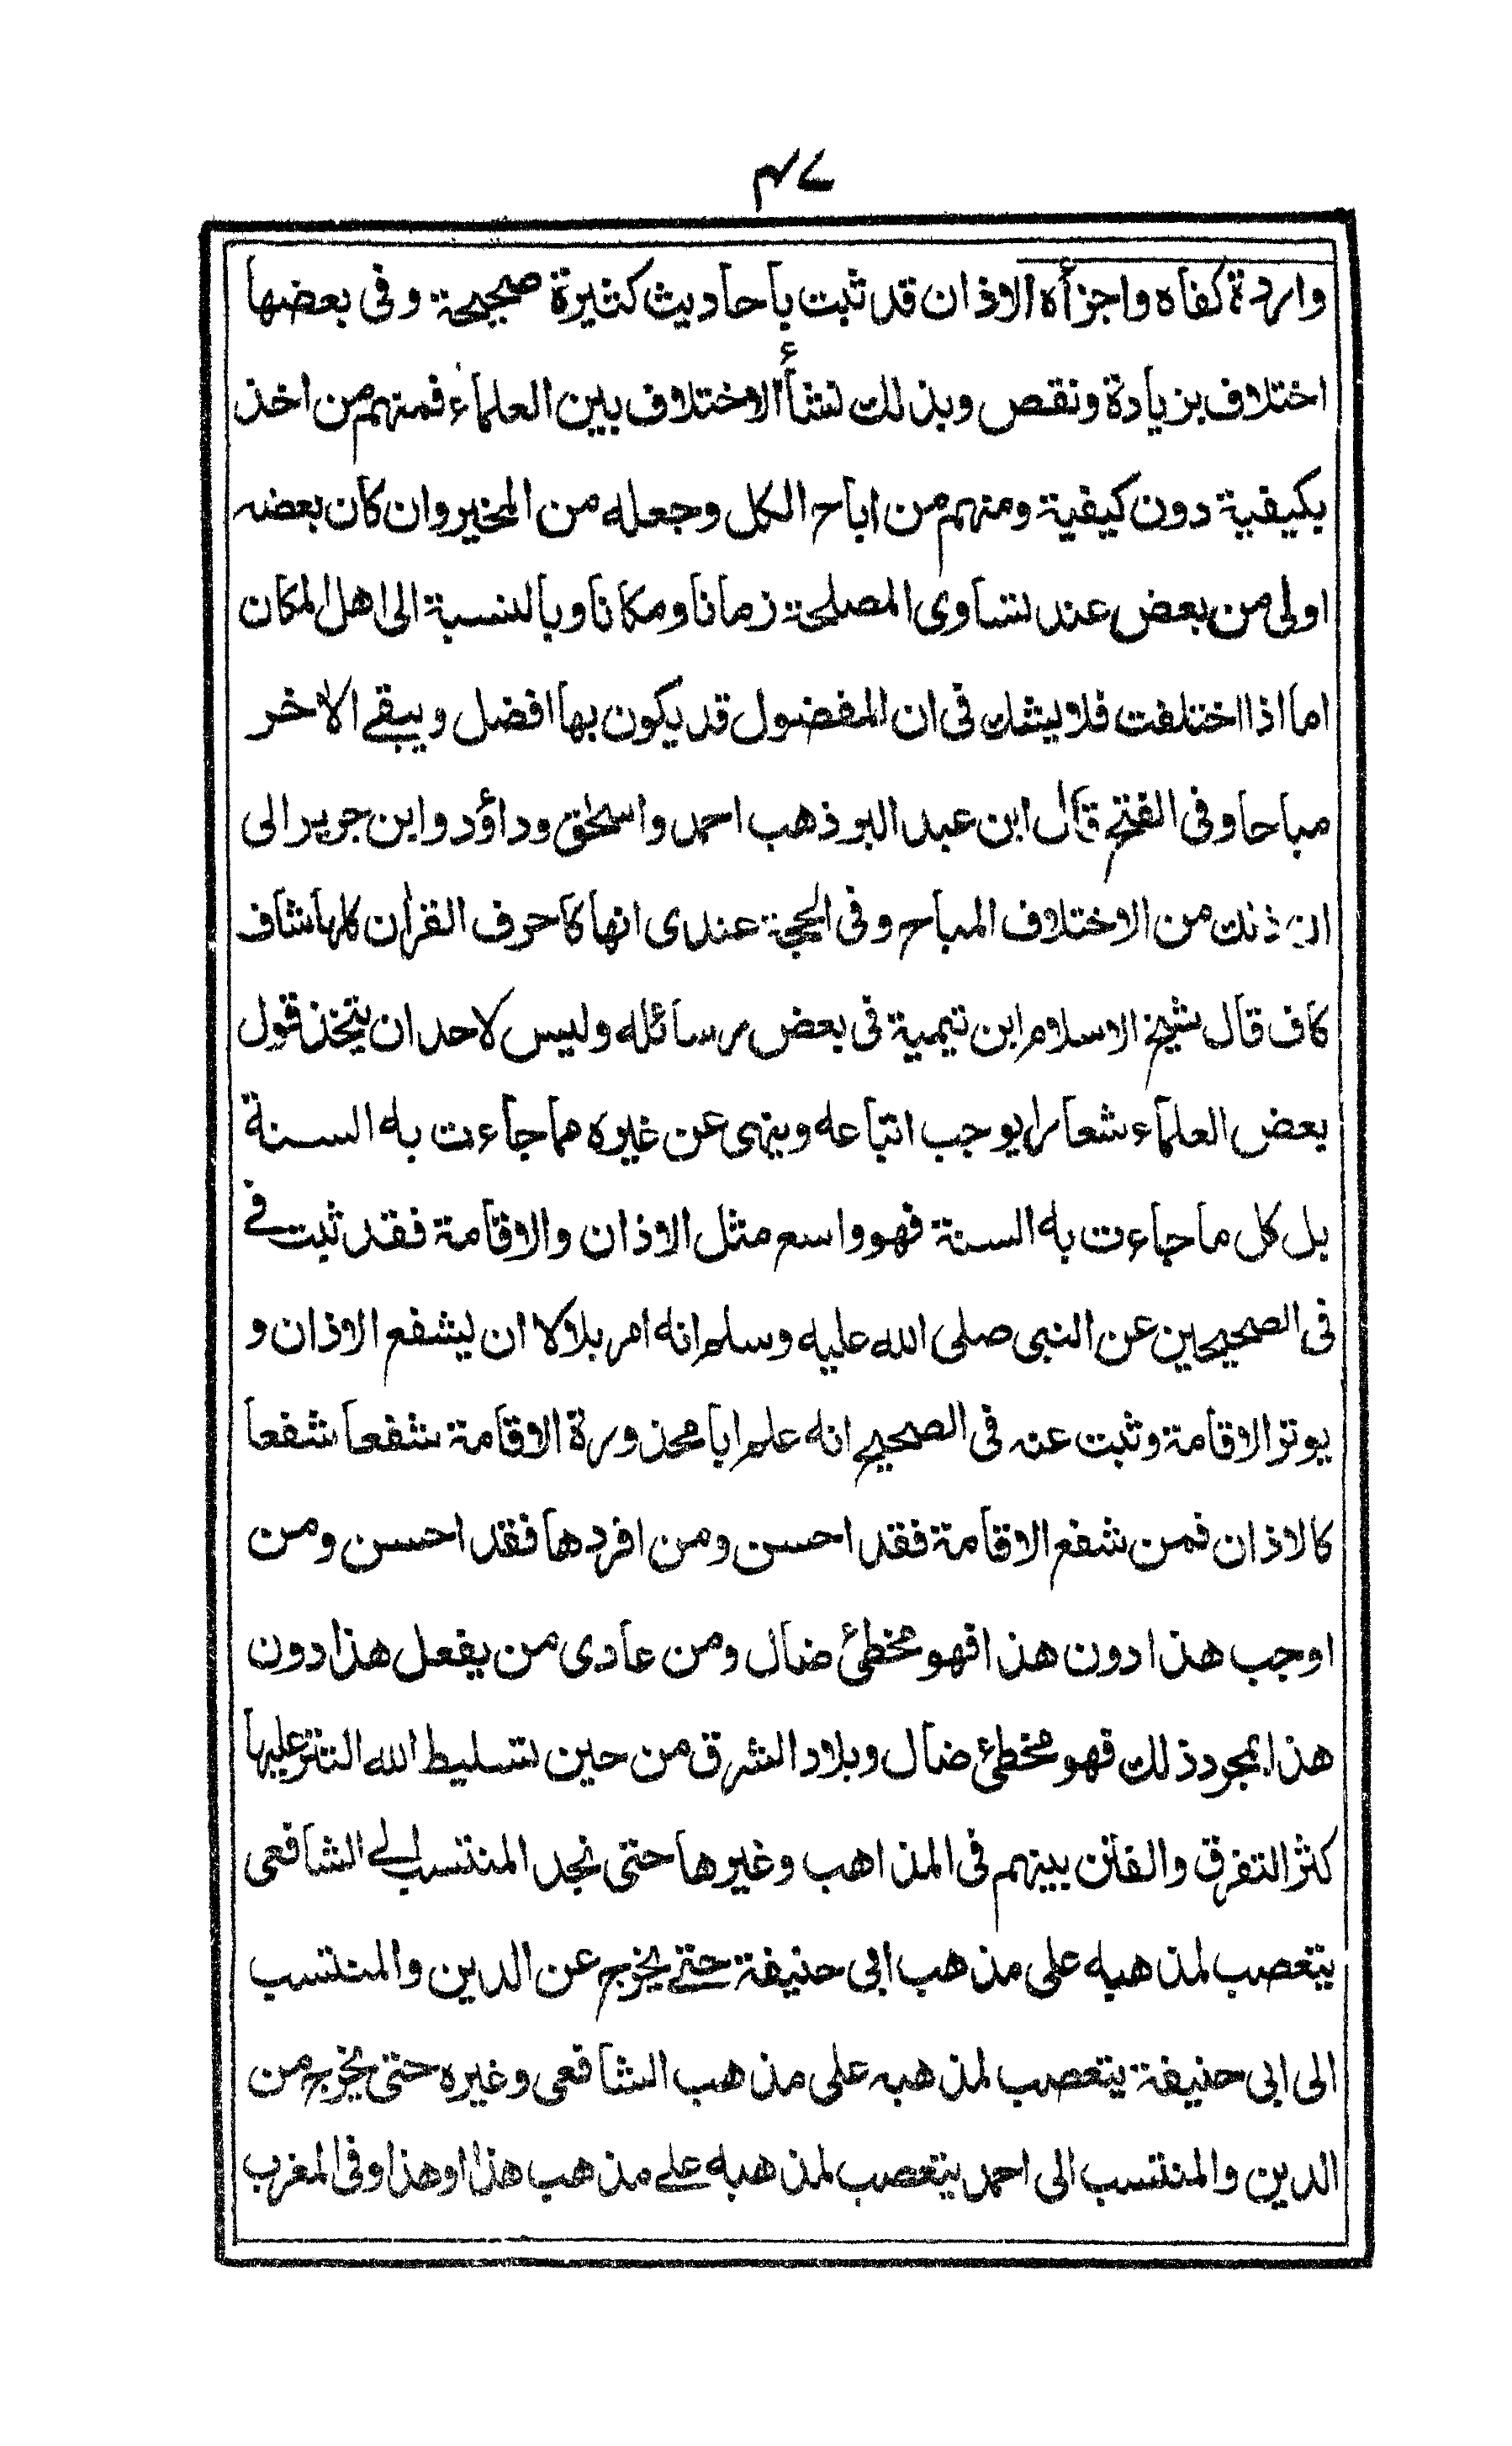 ۴۷
واردة كفاه واجزأه الاذان قد ثبت باحاديث كثيرة صحيحة وفى بعضها
اختلاف بزيادة ونقص وبذلك نشأ الاختلاف بين العلماء فمنهم من اخذ
بكيفية دون كيفية ومنهم من اباح الكل وجعله من المخير وان كان بعضه
اولى من بعض عند تساوى المصلحة زمانا ومكانا وبالنسبة الى اهل المكان
اما اذا اختلفت فلا يشك فى ان المفضول قد يكون بها افضل ويبقے الاخر
مباحا وفى الفتح قال ابن عبد البر ذهب احمد واسحٰق وداؤد وابن جرير الى
ان ذلك من الاختلاف المباح وفى الحجة عندى انها كاحرف القرأن كلها شاف
كاف قال شيخ الاسلام ابن تيمية فى بعض رسائله وليس لاحد ان يتخذ قول
بعض العلماء شعارا يوجب اتباعه وينهى عن غيره مما جاءت به السنة
بل كل ما جاءت به السنة فهو واسع مثل الاذان والاقامة فقد ثبت فے
فى الصحيحين عن النبى صلى الله عليه وسلم انه امر بلالا ان يشفع الاذان و
يوتر الاقامة وثبت عنه فى الصحيح انه علم ابا محذورة الاقامة شفعا شفعا
كالاذان فمن شفع الاقامة فقد احسن ومن افردها فقد احسن ومن
اوجب هذا دون هذا فهو مخطئ ضال ومن عادى من يفعل هذا دون
هذا بمجرد ذلك فهو مخطئ ضال وبلاد الشرق من حين تسليط الله التتر عليها
كثر التفرق والفتن بينهم فى المذاهب وغيرها حتى نجد المنتسب الے الشافعى
يتعصب لمذهبه على مذهب ابى حنيفة حتے يخرج عن الدين والمنتسب
الى ابى حنيفة يتعصب لمذهبه على مذهب الشافعى وغيره حتى يخرج من
الدين والمنتسب الى احمد يتعصب لمذهبه علے مذهب هذا اوهذا وفى المغرب